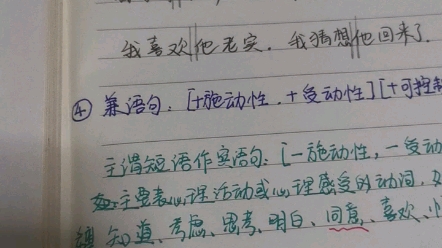 我喜欢‖他老实．我猜想‖他回来了．
④ 兼语句：[+施动性，+受动性][+可控制
主谓短语作宾语句：[－施动性，－受动
主要表心理活动或心理感受的动词，如
知道、考虑、思考、明白、同意、喜欢、